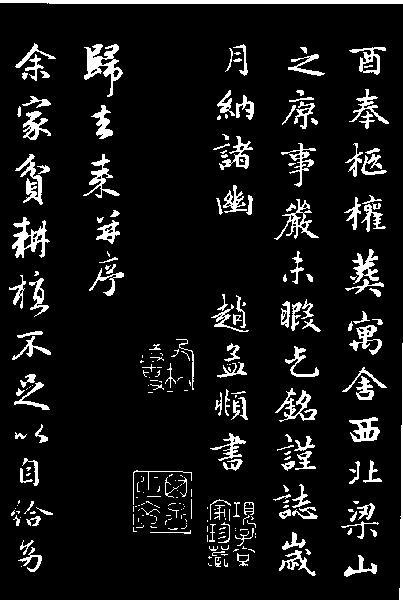 酉奉柩權葬寓舍西北梁山
之原事嚴未暇乞銘謹誌歲
月納諸幽 趙孟頫書
歸去來并序
余家貧耕植不足以自給幼